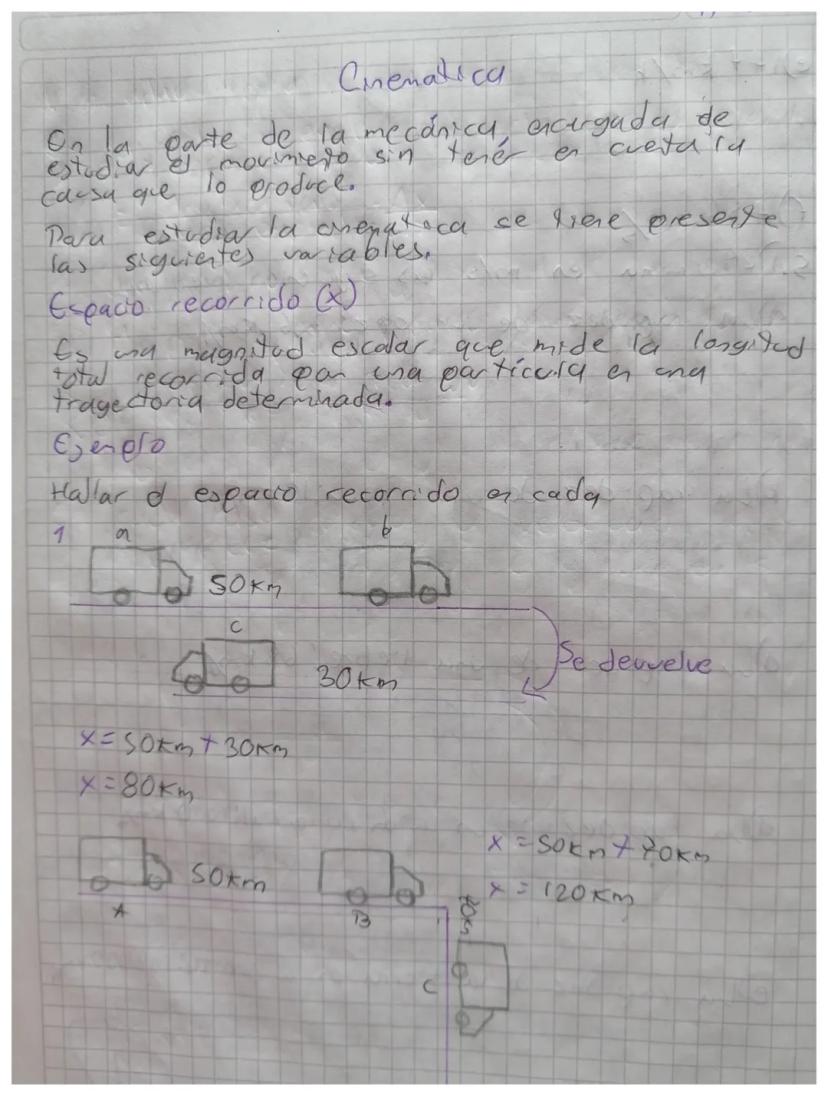 Cinematica
En la parte de la mecánica, encargada de
estudiar el movimiento sin tenér en cuenta la
causa que lo produce.
Para estudiar la cinematica se tiene presente
las siguientes variables.
Espacio recorrido (x)
Es una magnitud escalar que mide la longitud
total recorrida por una partícula en una
trayectoria determinada.
Ejemplo
Hallar el espacio recorrido en cada
1 a b
50km
c
Se devuelve
30km
x=50km+30km
x=80km
x=50km+70km
50km
x=120km
A B
70km
C